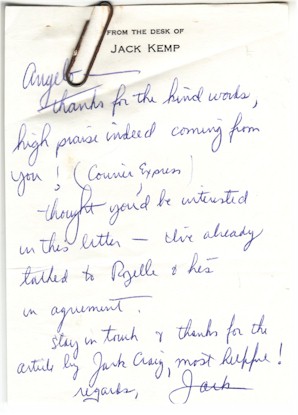 FROM THE DESK OF
JACK KEMP
Angelo
thanks for the kind words,
high praise indeed coming from
you! (Courier Express)
thought you'd be interested
in this letter — I've already
talked to Rozelle & he's
in agreement.
stay in touch & thanks for the
article by Jack Craig, most helpful!
regards, Jack